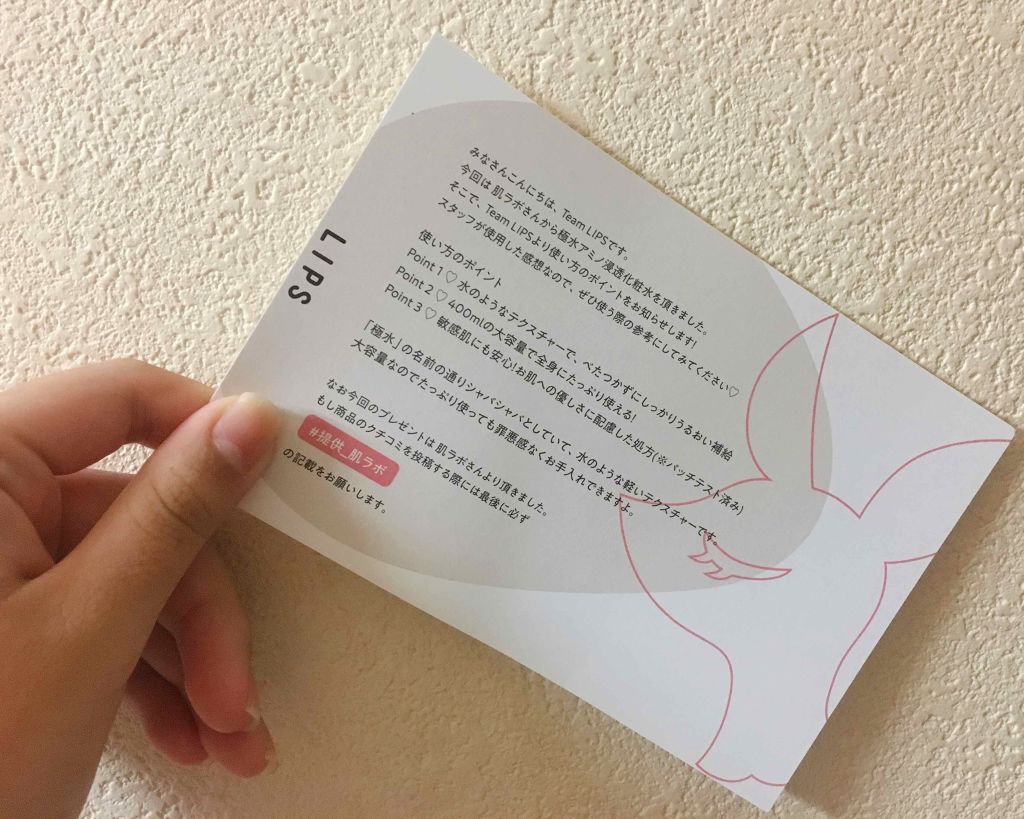 LIPS
みなさんこんにちは、Team LIPSです。
今回は 肌ラボさんから極水アミノ浸透化粧水を頂きました。
そこで、Team LIPSより使い方のポイントをお知らせします!
スタッフが使用した感想なので、ぜひ使う際の参考にしてみてください♡
使い方のポイント
Point 1 ♡ 水のようなテクスチャーで、べたつかずにしっかりうるおい補給
Point 2 ♡ 400mlの大容量で全身にたっぷり使える!
Point 3 ♡ 敏感肌にも安心!お肌への優しさに配慮した処方(※パッチテスト済み)
「極水」の名前の通りシャバシャバとしていて、水のような軽いテクスチャーです。
大容量なのでたっぷり使っても罪悪感なくお手入れできますよ。
なお今回のプレゼントは 肌ラボさんより頂きました。
もし商品のクチコミを投稿する際には最後に必ず
#提供_肌ラボ
の記載をお願いします。